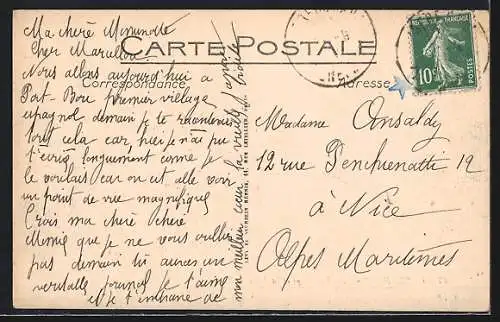 CARTE POSTALE
Correspondance
Adresse
REPUBLIQUE FRANÇAISE
POSTES
10c
Ma chère Mimmotte
Cher Marcellou
Nous allons aujourd'hui a
Port-Bou premier village
espagnol demain je te raconterai
tout cela car hier je n'ai pu
t'écrire longuement comme je
le voulais car on est allé voir
un point de vue magnifique
Crois ma chère chère
Mimie que je ne vous oublie
pas demain tu auras un
veritable journal je t'aime
et je t'embrasse de
mon meilleur cœur ta vieille
Madame Ansaldy
12 rue Penchenatti 12
à Nice
Alpes Maritimes